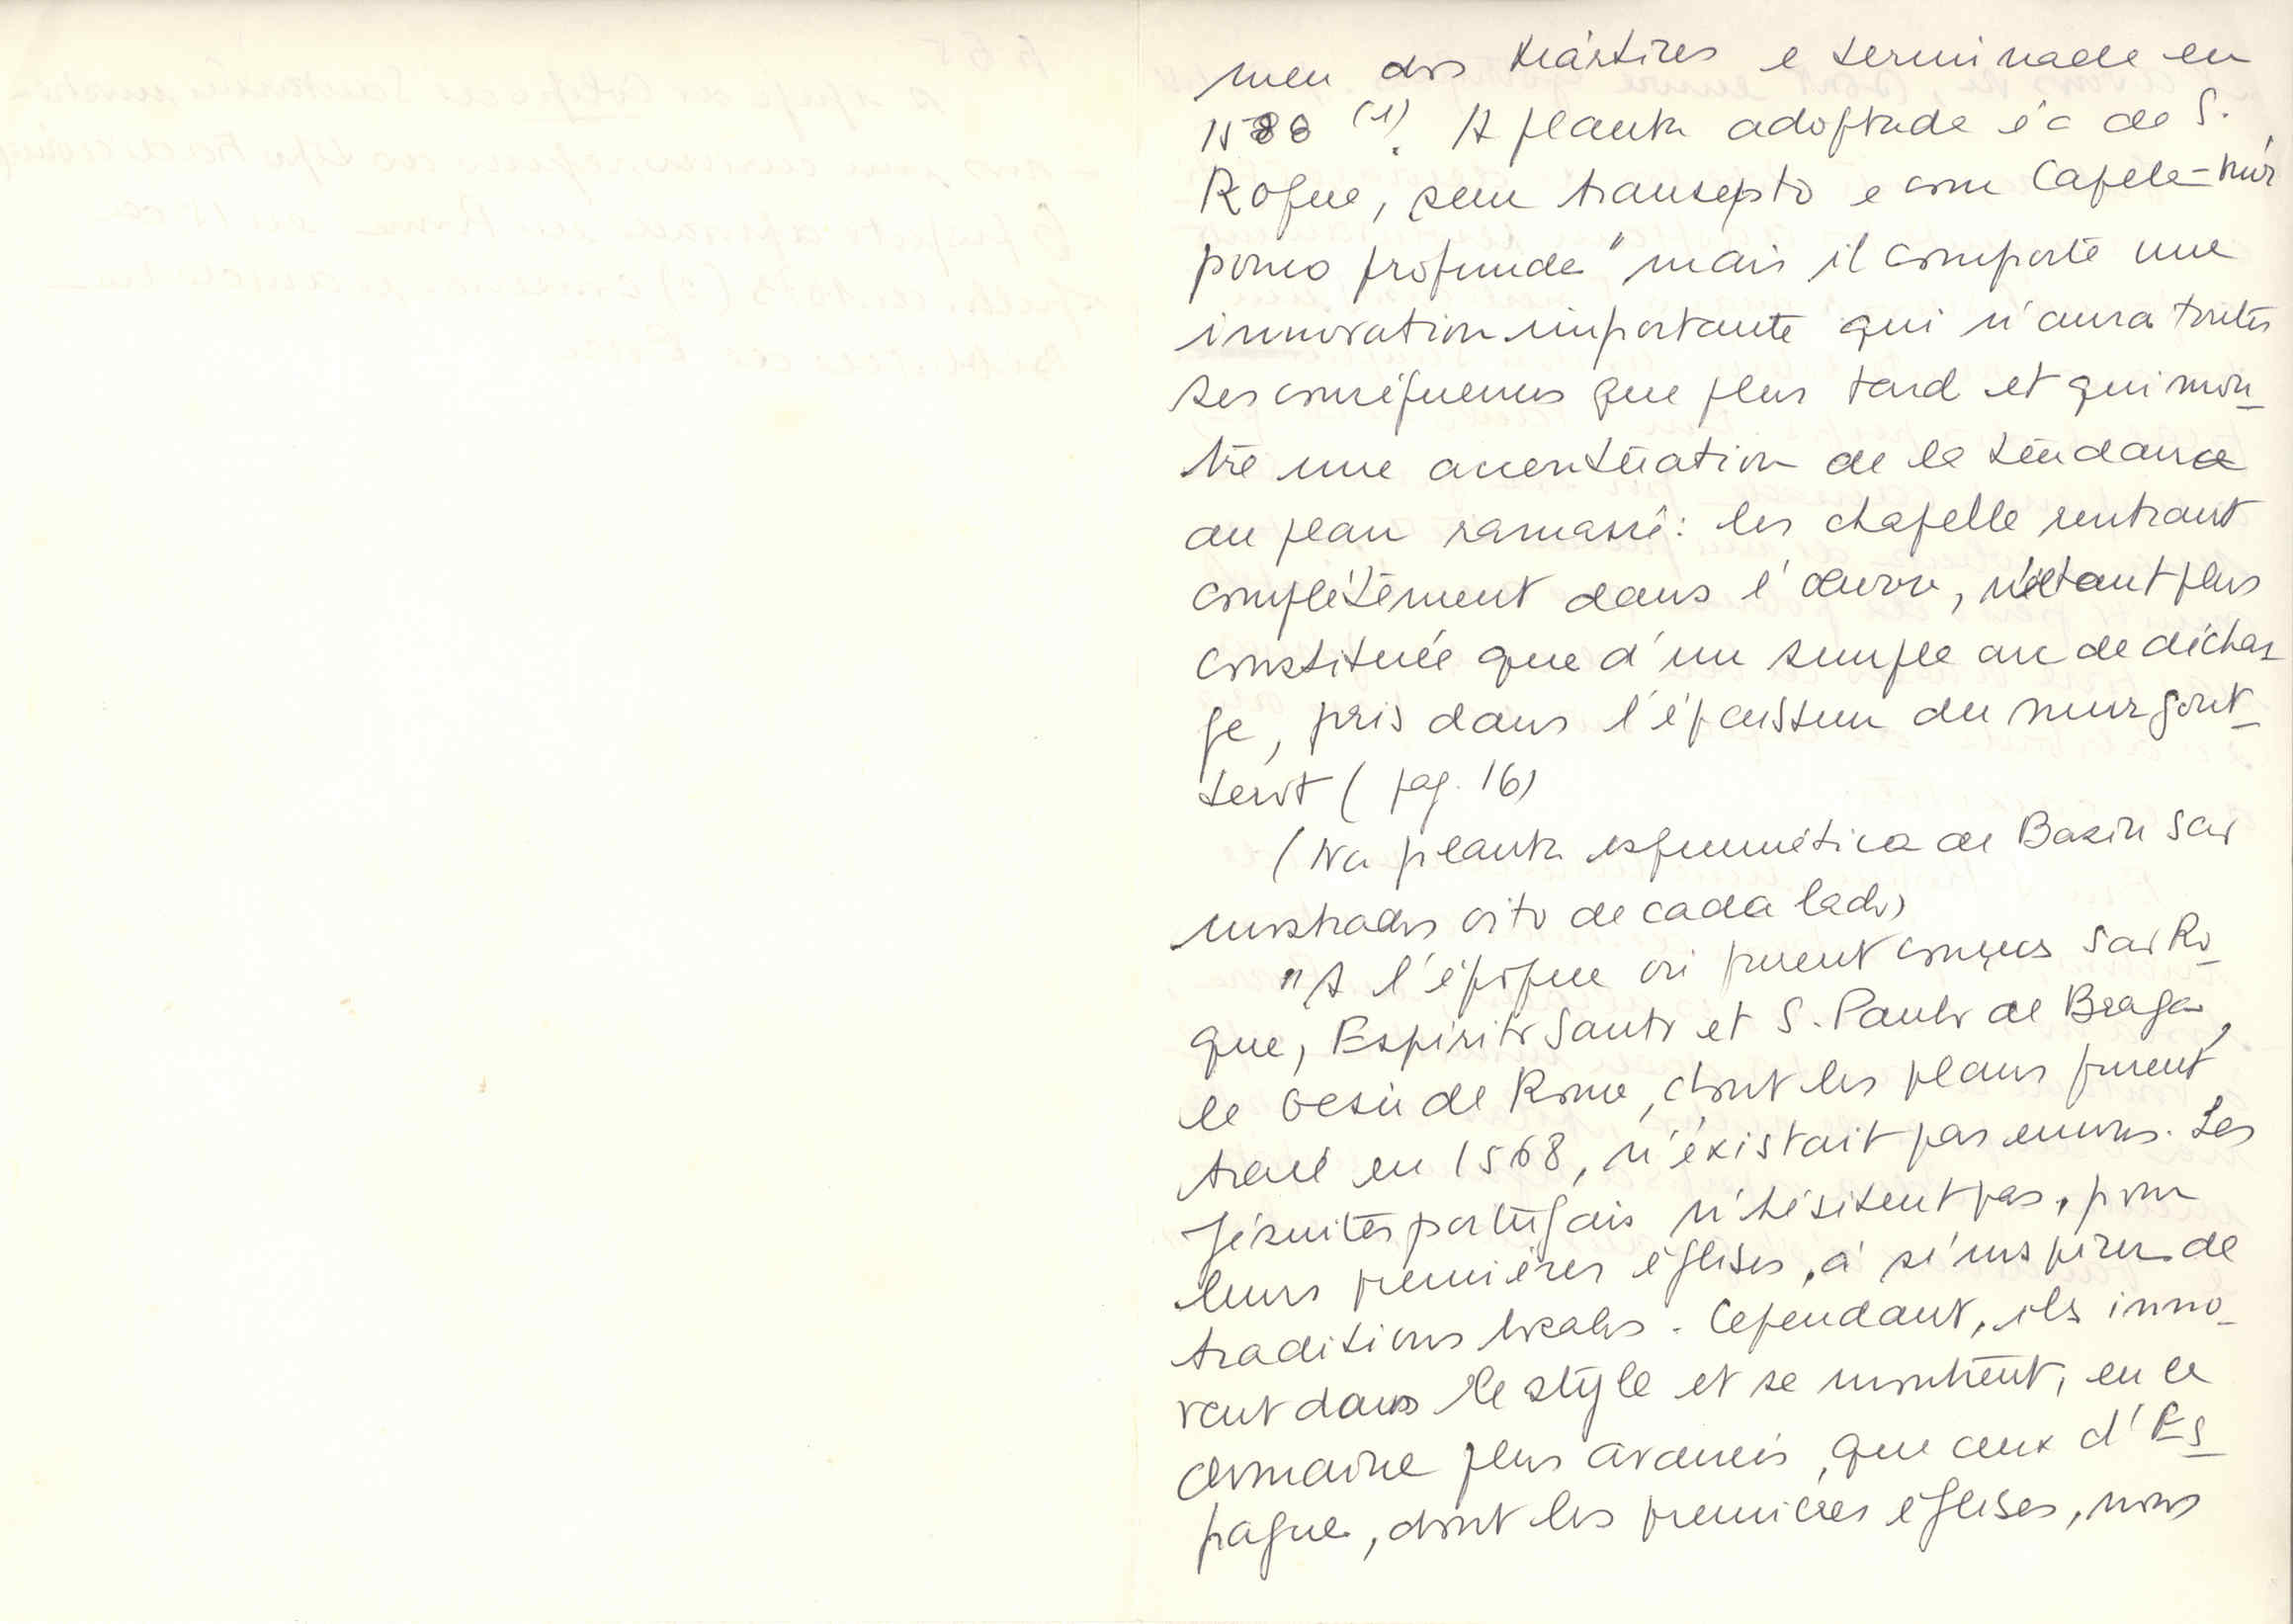 meu dos Mártires e terminada em
1588 (1). A planta adoptada é a de S.
Roque, sem transepto e com Capela-mór
pouco profunda" mais il comporte une
innovation importante qui n'aura toutes
ses conséquences que plus tard et qui mon-
tre une accentuation de la tendance
au plan ramassé: les chapelle rentrant
complétement dans l'œuvre, n'étant plus
constituée que d'un simple arc de déchar-
ge, pris dans l'épaisseur du mur gout-
terot (pag. 16)
(Na planta esquemática de Bazin São
mostrados oito de cada lado)
"A l'époque où furent conçus São Ro-
que, Espirito Santo et S. Paulo de Braga,
le Gesù de Rome, dont les plans furent
tracé en 1568, n'éxistait pas encore. Les
Jésuites portugais n'hésitent pas, pour
leurs premières églises, à s'inspirer de
traditions locales. Cependant, ils inno-
vent dans le style et se montrent, en ce
domaine plus avancés, que ceux d'Es-
pagne, dont les premières églises, nous